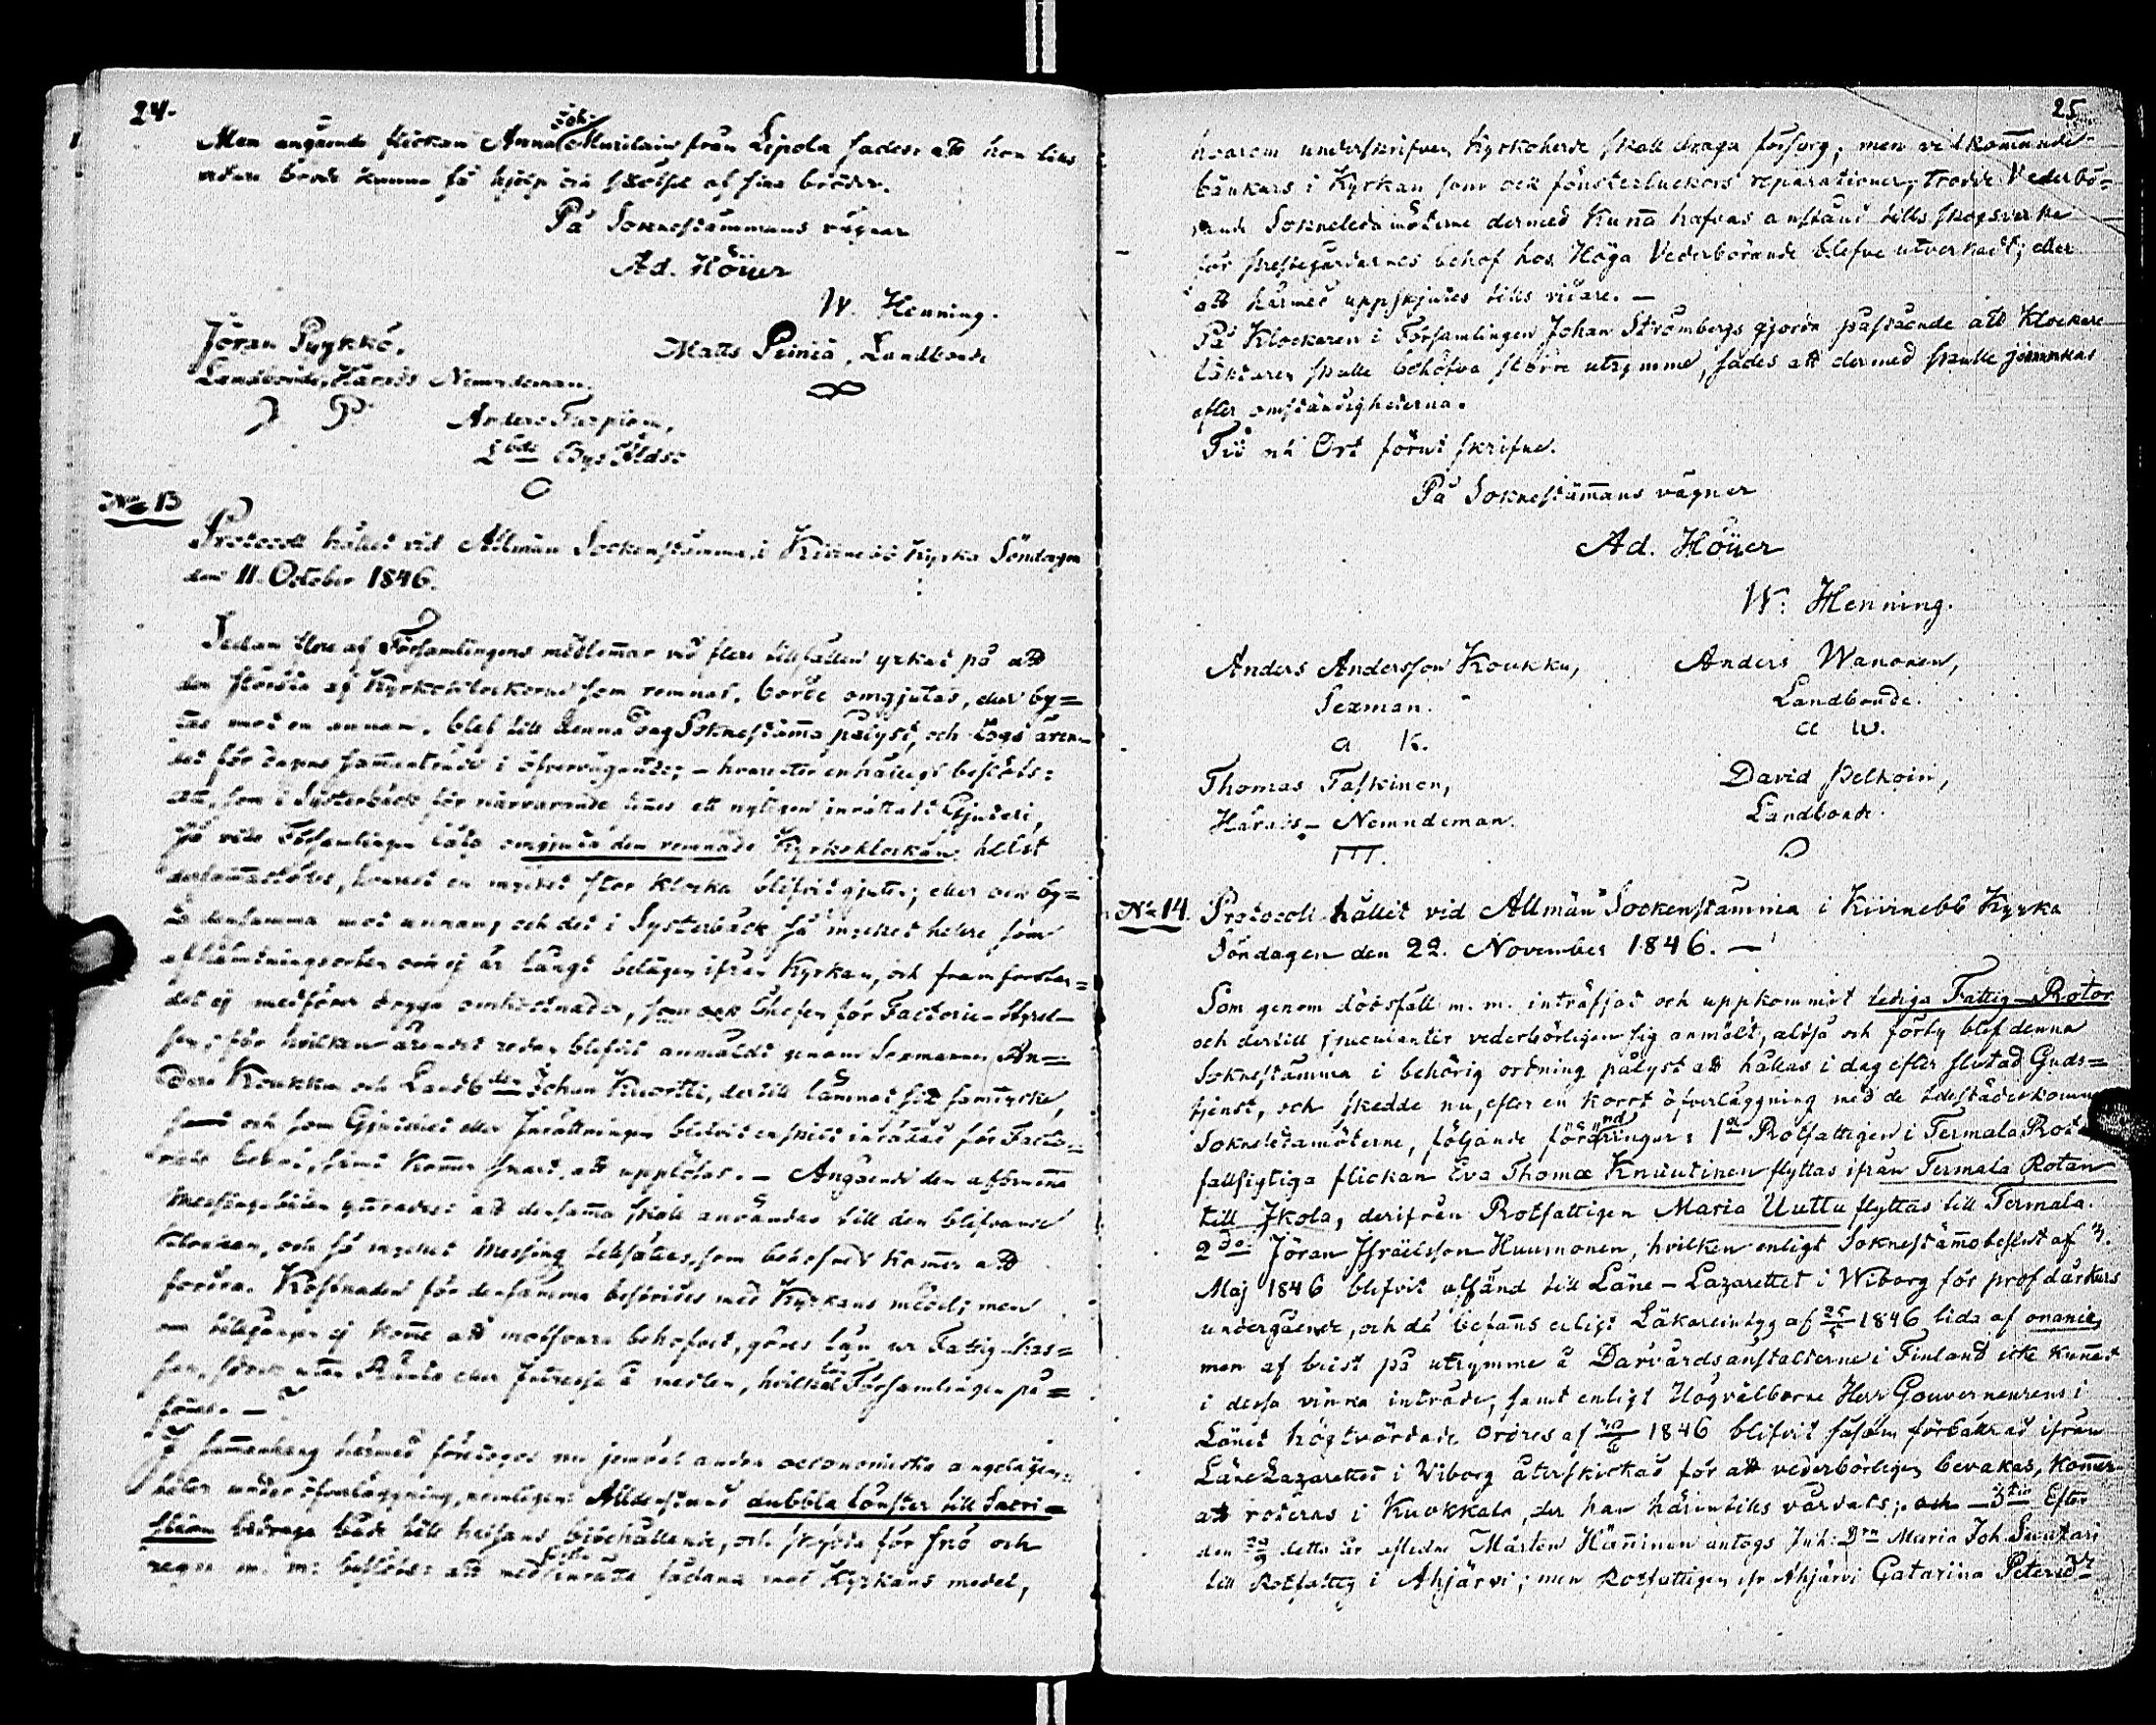 24.
Men angående flickan Anna Joh: Muzilain från Lipola sades: att hon lins
vidare borde kunna få hjelp och skötsel af sina bröder.
På Soknestämmans vägnar
Ad. Höijer
W. Henning.
Jöran Pykkö,
Landbonde, Härads Nemndeman.
Matts Peiniä, Landbonde
J P
Anders Tarpiain,
Lbde Bys Äldst
No 13
Protocoll hållet vid Allmän Sockenstämma i Kivinebb Kyrka Söndagen
den 11. October 1846.
Sedan flere af Församlingens medlemmar vid flere tillfällen yrkat på att
den största af Kyrkoklockorna som remnat, borde omgjutas, eller by=
tas mot en annan, blef till denna dag Soknestäma pålyst, och togs ären-
det för dagens samanträde i öfvervägande; – hvarefter enhälligt beslöts:
att, som i Systerbäck för närvarande finnes ett nyligen inrättadt Gjuteri,
så ville Församlingen låta omgjuta den remnade Kyrkoklockan, helst
derstammastädes, hvarest en mycket stor klocka blifvit gjuten; eller ock by=
ta densamma mot annan, och det i Systerbäck så mycket helre som
afhämtningsorten ock ej är långt belägen ifrån Kyrkan, och framforslan=
det ej medförer dryga omkostnader, som ock Chefen för Factorie-Styrel-
sen, för hvilken ärendet redan blifvit anmäldt genom Sexmannen An=
ders Koukku och Landbden Johan Kuortti, dertill lämnat sitt samtycke,
samt och som Gjuteriet eller Inrättningen blifvit enskildt inrättad för Facto=
riets behof, samt kommer snart att upplösas. – Angående den afbrunna
Messingsbiten yttrades: att densamma skall användas till den blifvande
klockan, och så mycket Messing tillsättas, som behofvet kommer att
fordra. Kostnaden för densamma bestrides med Kyrkans medel; men
om tillgången ej komme att motsvara behofvet, göres lån ur Fattig-Kas=
san, utan Ränta eller Intresse å medlen, hvilket lån Församlingen på=
föres. –
I sammanhang härmed företogos nu jemväl andra oeconomiska angelägen=
heter under öfverläggning, nemligen: Alldenstund dubbla fönster till Sacri=
stian bidraga både till helsans bibehållande, och skydda för snö och
regn m. m: beslöts: att med första inrätta sådana mot Kyrkans medel,
25
hvarom underskrifven Kyrkoherde skall draga försorg; men vidkommande
bänkars i Kyrkan som ock fönsterluckors reparationer, trodde Vederbö=
rande Sokneledamöterne dermed kunna hafvas anstånd tills skogsverke
för prestegårdarnes behof hos Höga Vederbörande blefve utverkadt; eller
att härmed uppskjutes tills vidare. –
På Klockaren i Församlingen Johan Strömbergs gjorda påstående att Klockare
läktaren skulle behöfva större utrymme, sades att dermed skulle jemnkas
efter omständigheterna.
Tid och Ort förut skrifne.
På Soknestämans vägner
Ad. Höijer
W. Henning.
Anders Andersson Koukku,
Sexman.
A K.
Anders Wanonen,
Landbonde.
A W.
Thomas Taskinen,
Härads-Nemndeman.
TTT.
David Pelkoin,
Landbonde.
No 14. Protocoll hållet vid Allmän Sockenstämma i Kivinebb Kyrka
Söndagen den 22. November 1846. –
Som genom dödsfall m. m. inträffat och uppkommit lediga Fattig-Rotor
och dertill spectanter vederbörligen sig anmält, altså och förty blef denna
Soknestämma i behörig ordning pålyst att hållas i dag efter slutad Guds=
tjenst, och skedde nu, efter en korrt öfverläggning med de tillstädeskomne
Sokneledamöterne, följande förändringar: 1a Rotfattigen i Termala Rot
fallsigtiga flickan Eva Thomæ Knuutinen flyttas ifrån Termala Rotan
till Ikola, derifrån Rotfattigen Maria Uuttu flyttas till Termala.
2do Jöran Israelsson Huumonen, hvilken enligt Soknestämobeslut af 3.
Maj 1846 blifvit afsänd till Läne-Lazarettet i Wiborg för prof dårkurs
undergående, och då befanns enligt Läkareintyg af 25/5 1846 lida af onanie,
men af brist på utrymme å Dårvårdsanstalterne i Finland icke kunnat
i dessa vinna inträde, samt enligt Högvälborne Herr Gouverneurens i
Länet högtvördade Ordres af 1846 blifvit såsom förbättrad ifrån
Läne Lazarettet i Wiborg återskickad för att vederbörligen bevakas, kommer
att roteras i Kuokkala, der han härintills vårdats; och – 3tio Efter
den detta år aflidne Mårten Hänninen antogs Inh: Drn Maria Joh: Suutari
till Rotfattig i Ahjärvi; men Rotfattigen ifr Ahjärvi Catarina Petersdr